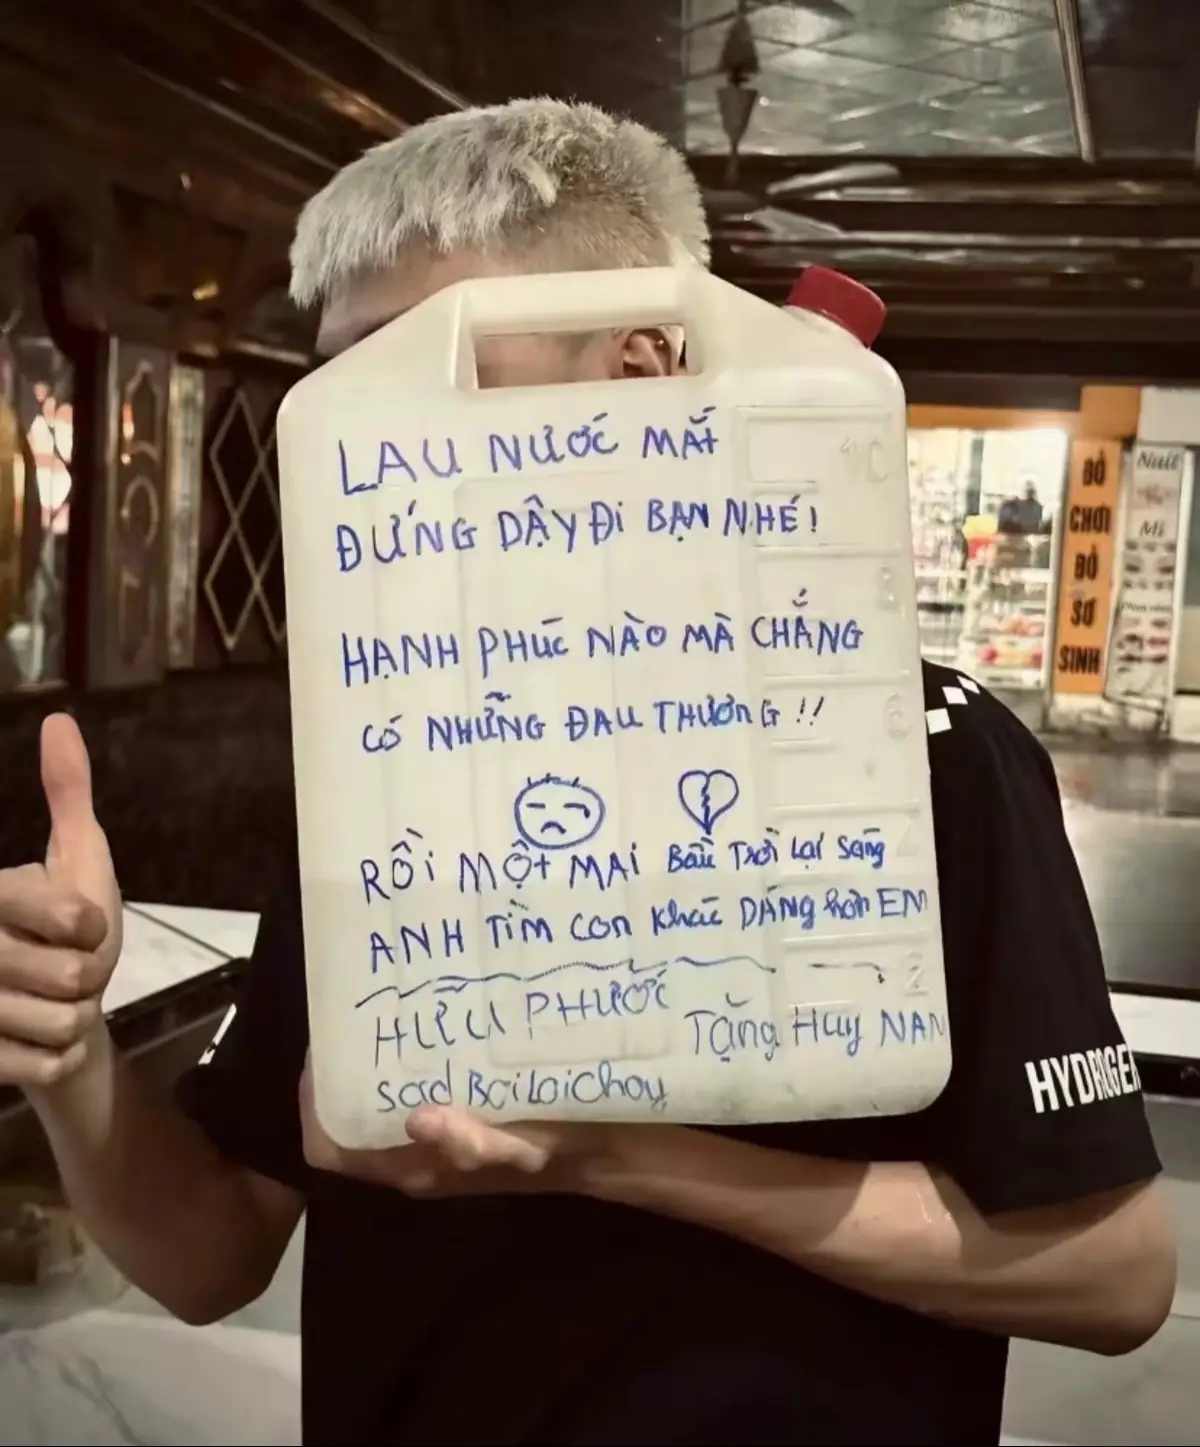 LAU NƯỚC MẮT
ĐỨNG DẬY ĐI BẠN NHÉ!
HẠNH PHÚC NÀO MÀ CHẲNG
CÓ NHỮNG ĐAU THƯƠNG!!
RỒI MỘT MAI BẦU TRỜI LẠI SÁNG
ANH TÌM CON KHÁC DÁNG HƠN EM
HỮU PHƯỚC
TẶNG HUY NAM
SAD BoiLoiChoy
HYDROGEN
ĐỒ
CHƠI
ĐỒ
SƠ
SINH
Nail
Mi